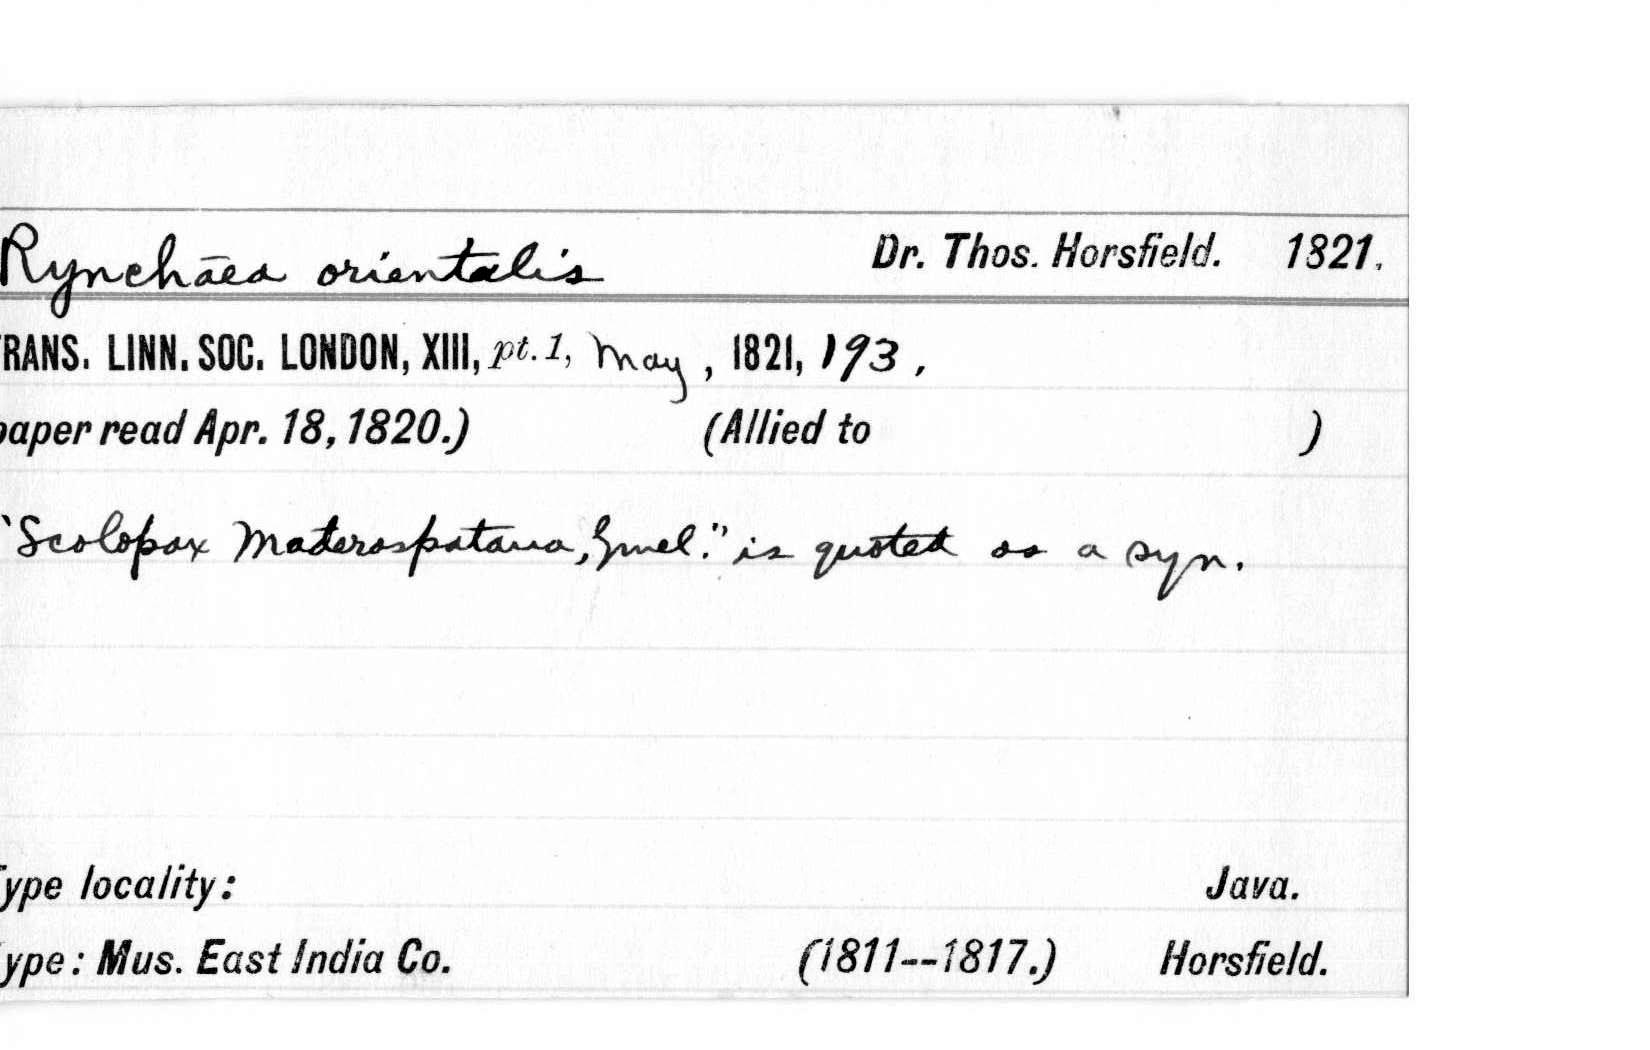 Rynchāea orientalis Dr. Thos. Horsfield. 1821.
RANS. LINN. SOC. LONDON, XIII, pt. 1, May, 1821, 193.
paper read Apr. 18, 1820.) (Allied to )
"Scolopax Maderaspatana, Gmel." is quoted as a syn.
Type locality: Java.
ype: Mus. East India Co. (1811--1817.) Horsfield.